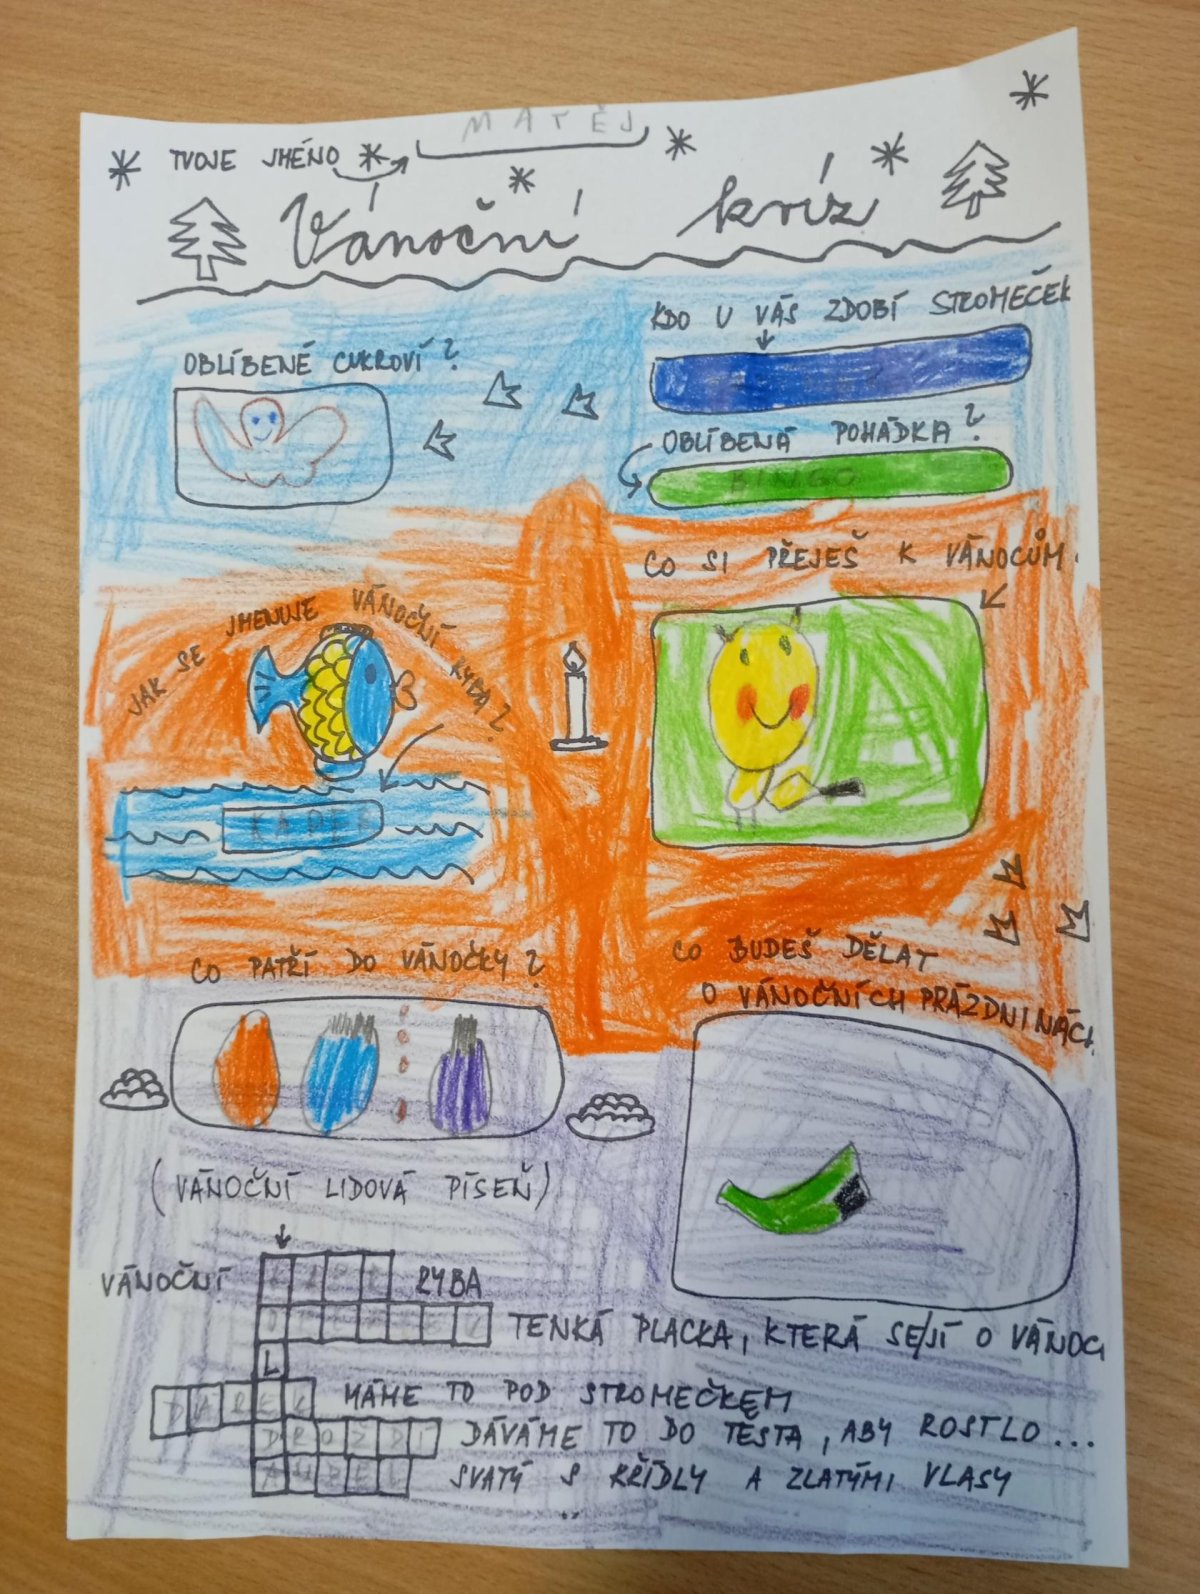 MATĚJ
TVOJE JMÉNO
Vánoční kvíz
KDO U VÁS ZDOBÍ STROMEČEK
OBLÍBENÉ CUKROVÍ?
OBLÍBENÁ POHÁDKA?
BINGO
CO SI PŘEJEŠ K VÁNOCŮM.
JAK SE JMENUJE VÁNOČNÍ RYBA?
KAPER
CO PATŘÍ DO VÁNOČKY?
CO BUDEŠ DĚLAT
O VÁNOČNÍCH PRÁZDNINÁCH.
(VÁNOČNÍ LIDOVÁ PÍSEŇ)
VÁNOČNÍ RYBA
TENKÁ PLACKA, KTERÁ SE JÍ O VÁNOC
L
DÁREK MÁME TO POD STROMEČKEM
DROZDÍ DÁVÁME TO DO TĚSTA, ABY ROSTLO...
SVATÝ S KŘÍDLY A ZLATÝMI VLASY